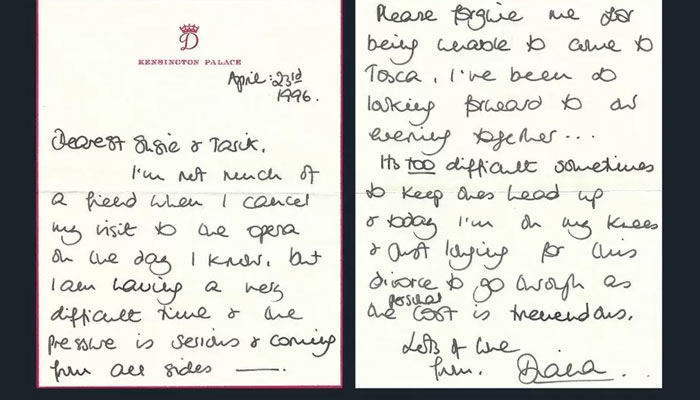 D
KENSINGTON PALACE
April : 23rd
1996.
Dearest Susie & Tarik,
I'm not much of
a friend when I cancel
my visit to the opera
on the day I know, but
I am having a very
difficult time & the
pressure is serious & coming
from all sides —.
Please forgive me for
being unable to come to
Tosca, I've been so
looking forward to our
evening together...
Its too difficult sometimes
to keep ones head up
& today I'm on my knees
& just longing for this
divorce to go through as
the personal cost is tremendous.
Lots of love
from, Diana.